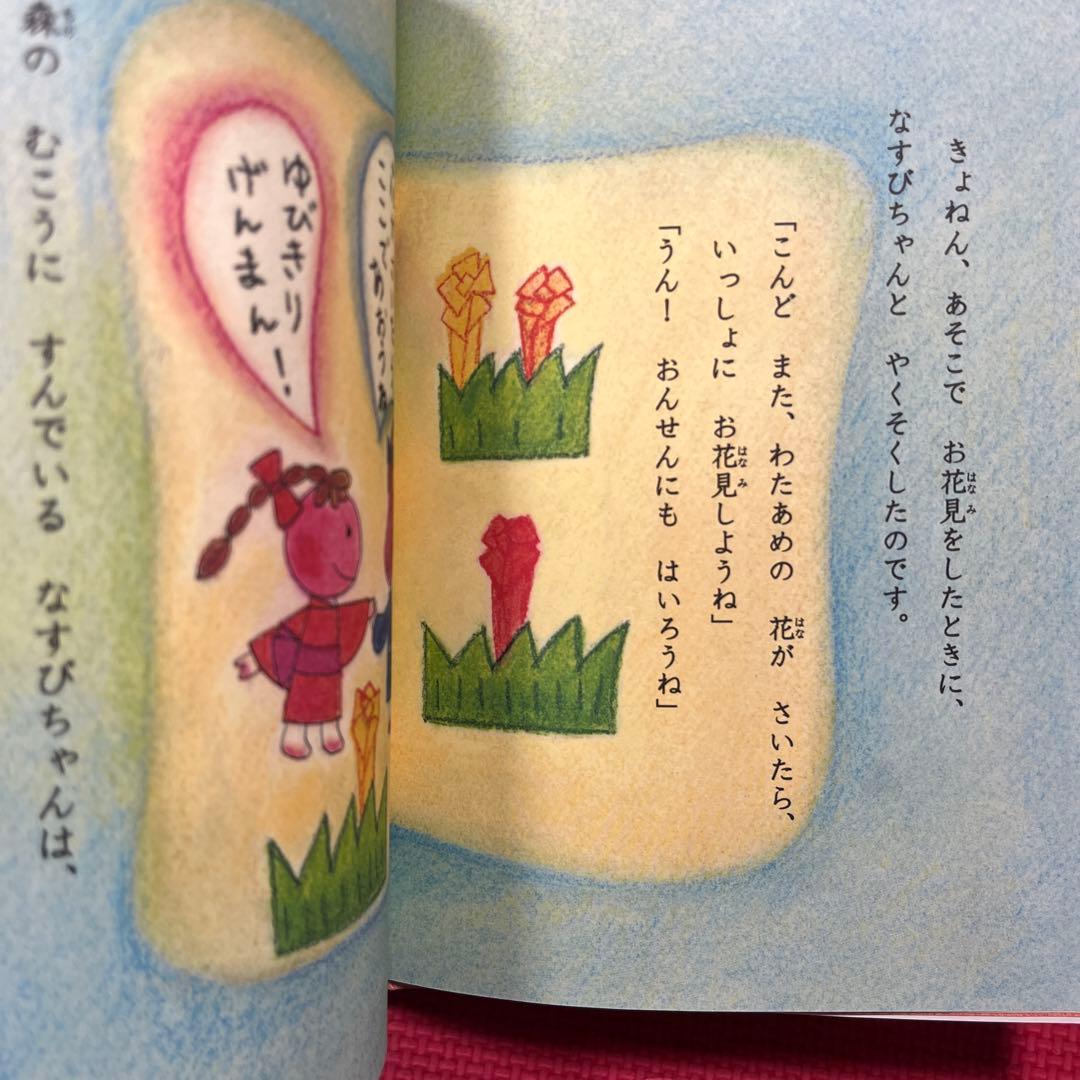 きょねん、あそこで お花見をしたときに、
なすびちゃんと やくそくしたのです。
「こんど また、わたあめの 花が さいたら、
いっしょに お花見しようね」
「うん! おんせんにも はいろうね」
ここで
ゆびきり
げんまん!
森の むこうに すんでいる なすびちゃんは、